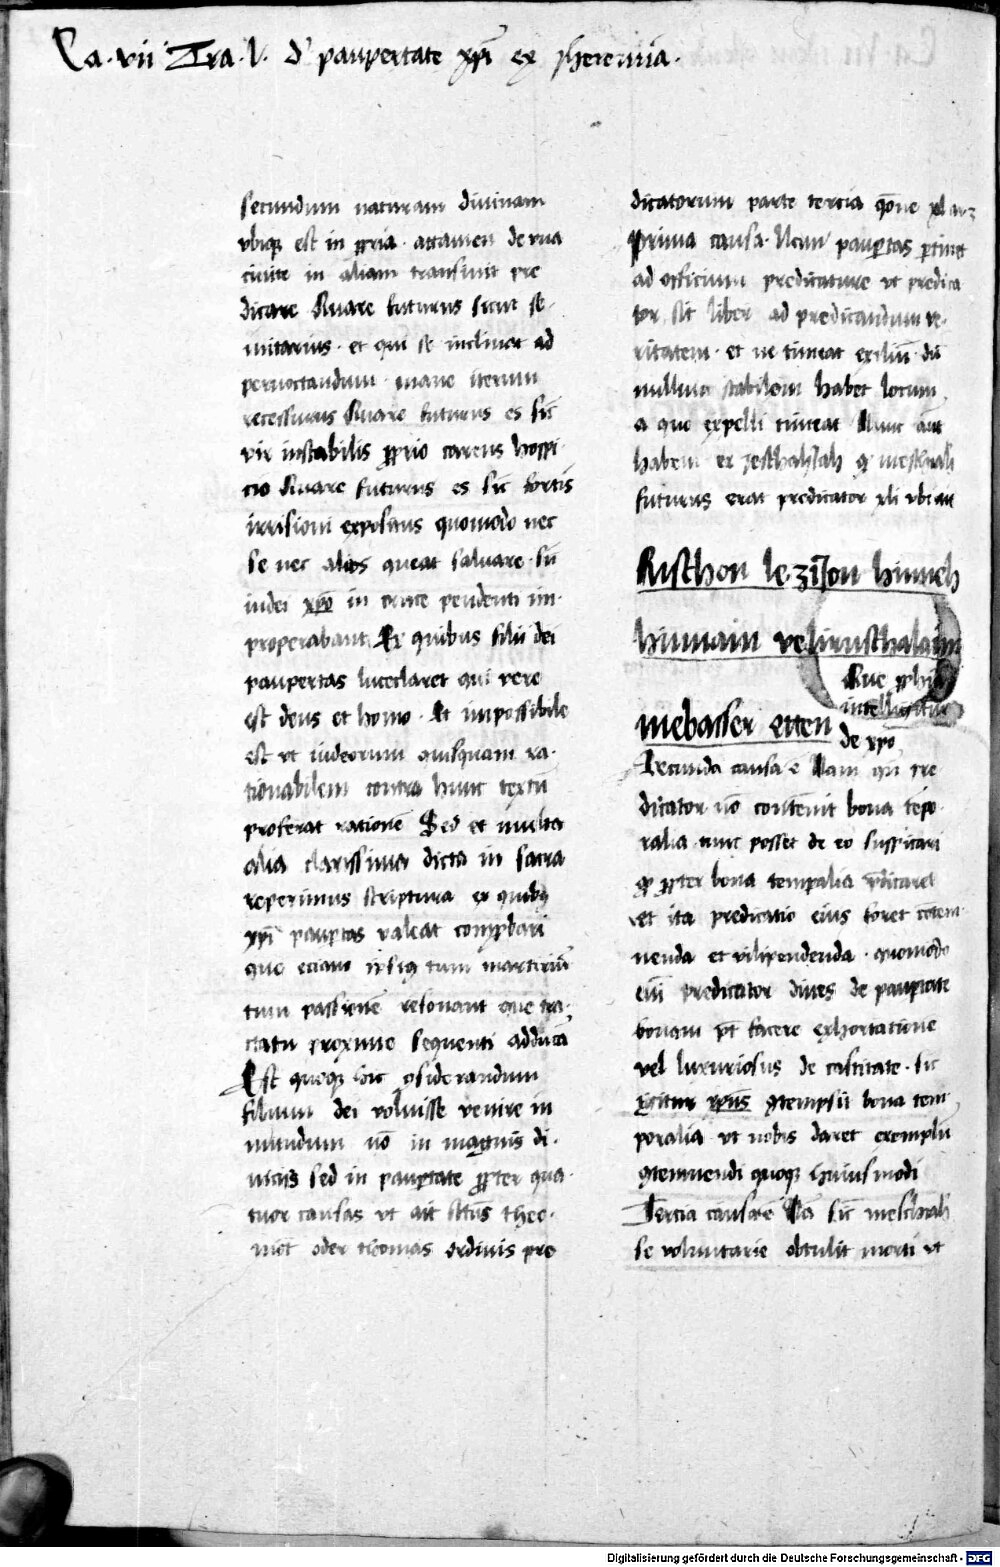 Ca. vii Tra. V. d' paupertate xpi ex Iheremia.
secundum naturam diuinam
vbiqȝ est in pria. attamen de vna
ciuite in aliam transiuit pre
dicare Quare futurus sicut se
mitarius. et qui se inclinet ad
pernoctandum. mane iterum
recessurus Quare futurus es sic
vir instabilis pprio carens hospi
cio Quare futurus es sic fortis
irrisioni expositus quomodo nec
se nec alios queat saluare. sic
iudei xpo in cruce pendenti im
properabant. Ex quibus filii dei
paupertas luce claret qui vere
est deus et homo. Et impossibile
est vt iudeorum quisquam ra
tionabilem contra hunc textū
proferat rationē Sed et multa
alia clarissima dicta in sacra
reperimus scriptura ex quibȝ
xpi paupertas valeat comprobari
que eciam ipsiȝ tum martiriū
tum passionē resonant que tra
ctatu proxime sequenti adducā
Est quoqȝ hic ꝯsiderandum
filium dei voluisse venire in
mundum nō in magnis di
uiciis sed in paupertate ppter qua
tuor causas vt ait sctūs theo
mot oder thomas ordinis pre
dicatorum parte tercia qōne xl ar3
Prima causa. Nam paupertas ptinet
ad officium predicature vt predica
tor sit liber ad predicandum ve
ritatem. et ne timeat exiliū. dū
nullum stabilem habet locum
a quo expelli timeat Nunc aūt
habem ex Jeschahiah qȝ meschiah
futurus erat predicator xli vbi ait
Rischon le.zijon hinneh
hinnam velirüschalaim
Que pphia
intelligitur
mebasser etten de xpo
Secunda causa ē Nam qn̄ pre
dicator nō contēnit bona tēpo
ralia tunc posset de eo suspicari
qȝ ppter bona temporalia pdicaret
et ita predicatio eius foret cōtem
nenda et vilipendenda. quomodo
em̄ predicator diues de paupertate
bonam pt facere exhortatione
vel luxuriosus de castitate. sic
igitur xpūs ꝯtempsit bona tem
poralia vt nobis daret exemplū
ꝯtemnendi quoqȝ huiusmodi
Tercia causa ē Nā sic meschiah
se voluntarie obtulit morti vt
Digitalisierung gefördert durch die Deutsche Forschungsgemeinschaft - DFG